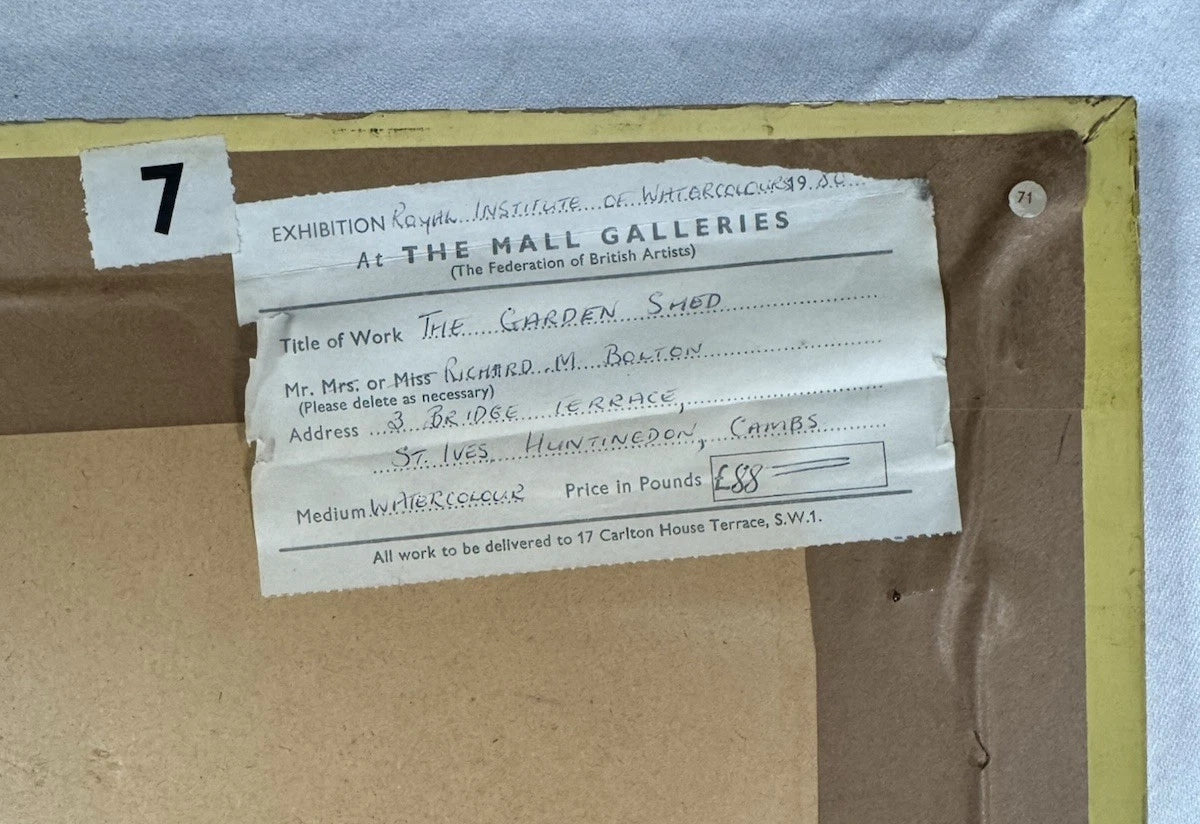 7
71
EXHIBITION ROYAL INSTITUTE OF WATERCOLOURS 19.80
At THE MALL GALLERIES
(The Federation of British Artists)
Title of Work THE GARDEN SHED
Mr. Mrs. or Miss RICHARD M. BOLTON
(Please delete as necessary)
Address 3 BRIDGE TERRACE,
ST. IVES, HUNTINGDON, CAMBS
Medium WATERCOLOUR Price in Pounds £88
All work to be delivered to 17 Carlton House Terrace, S.W.1.